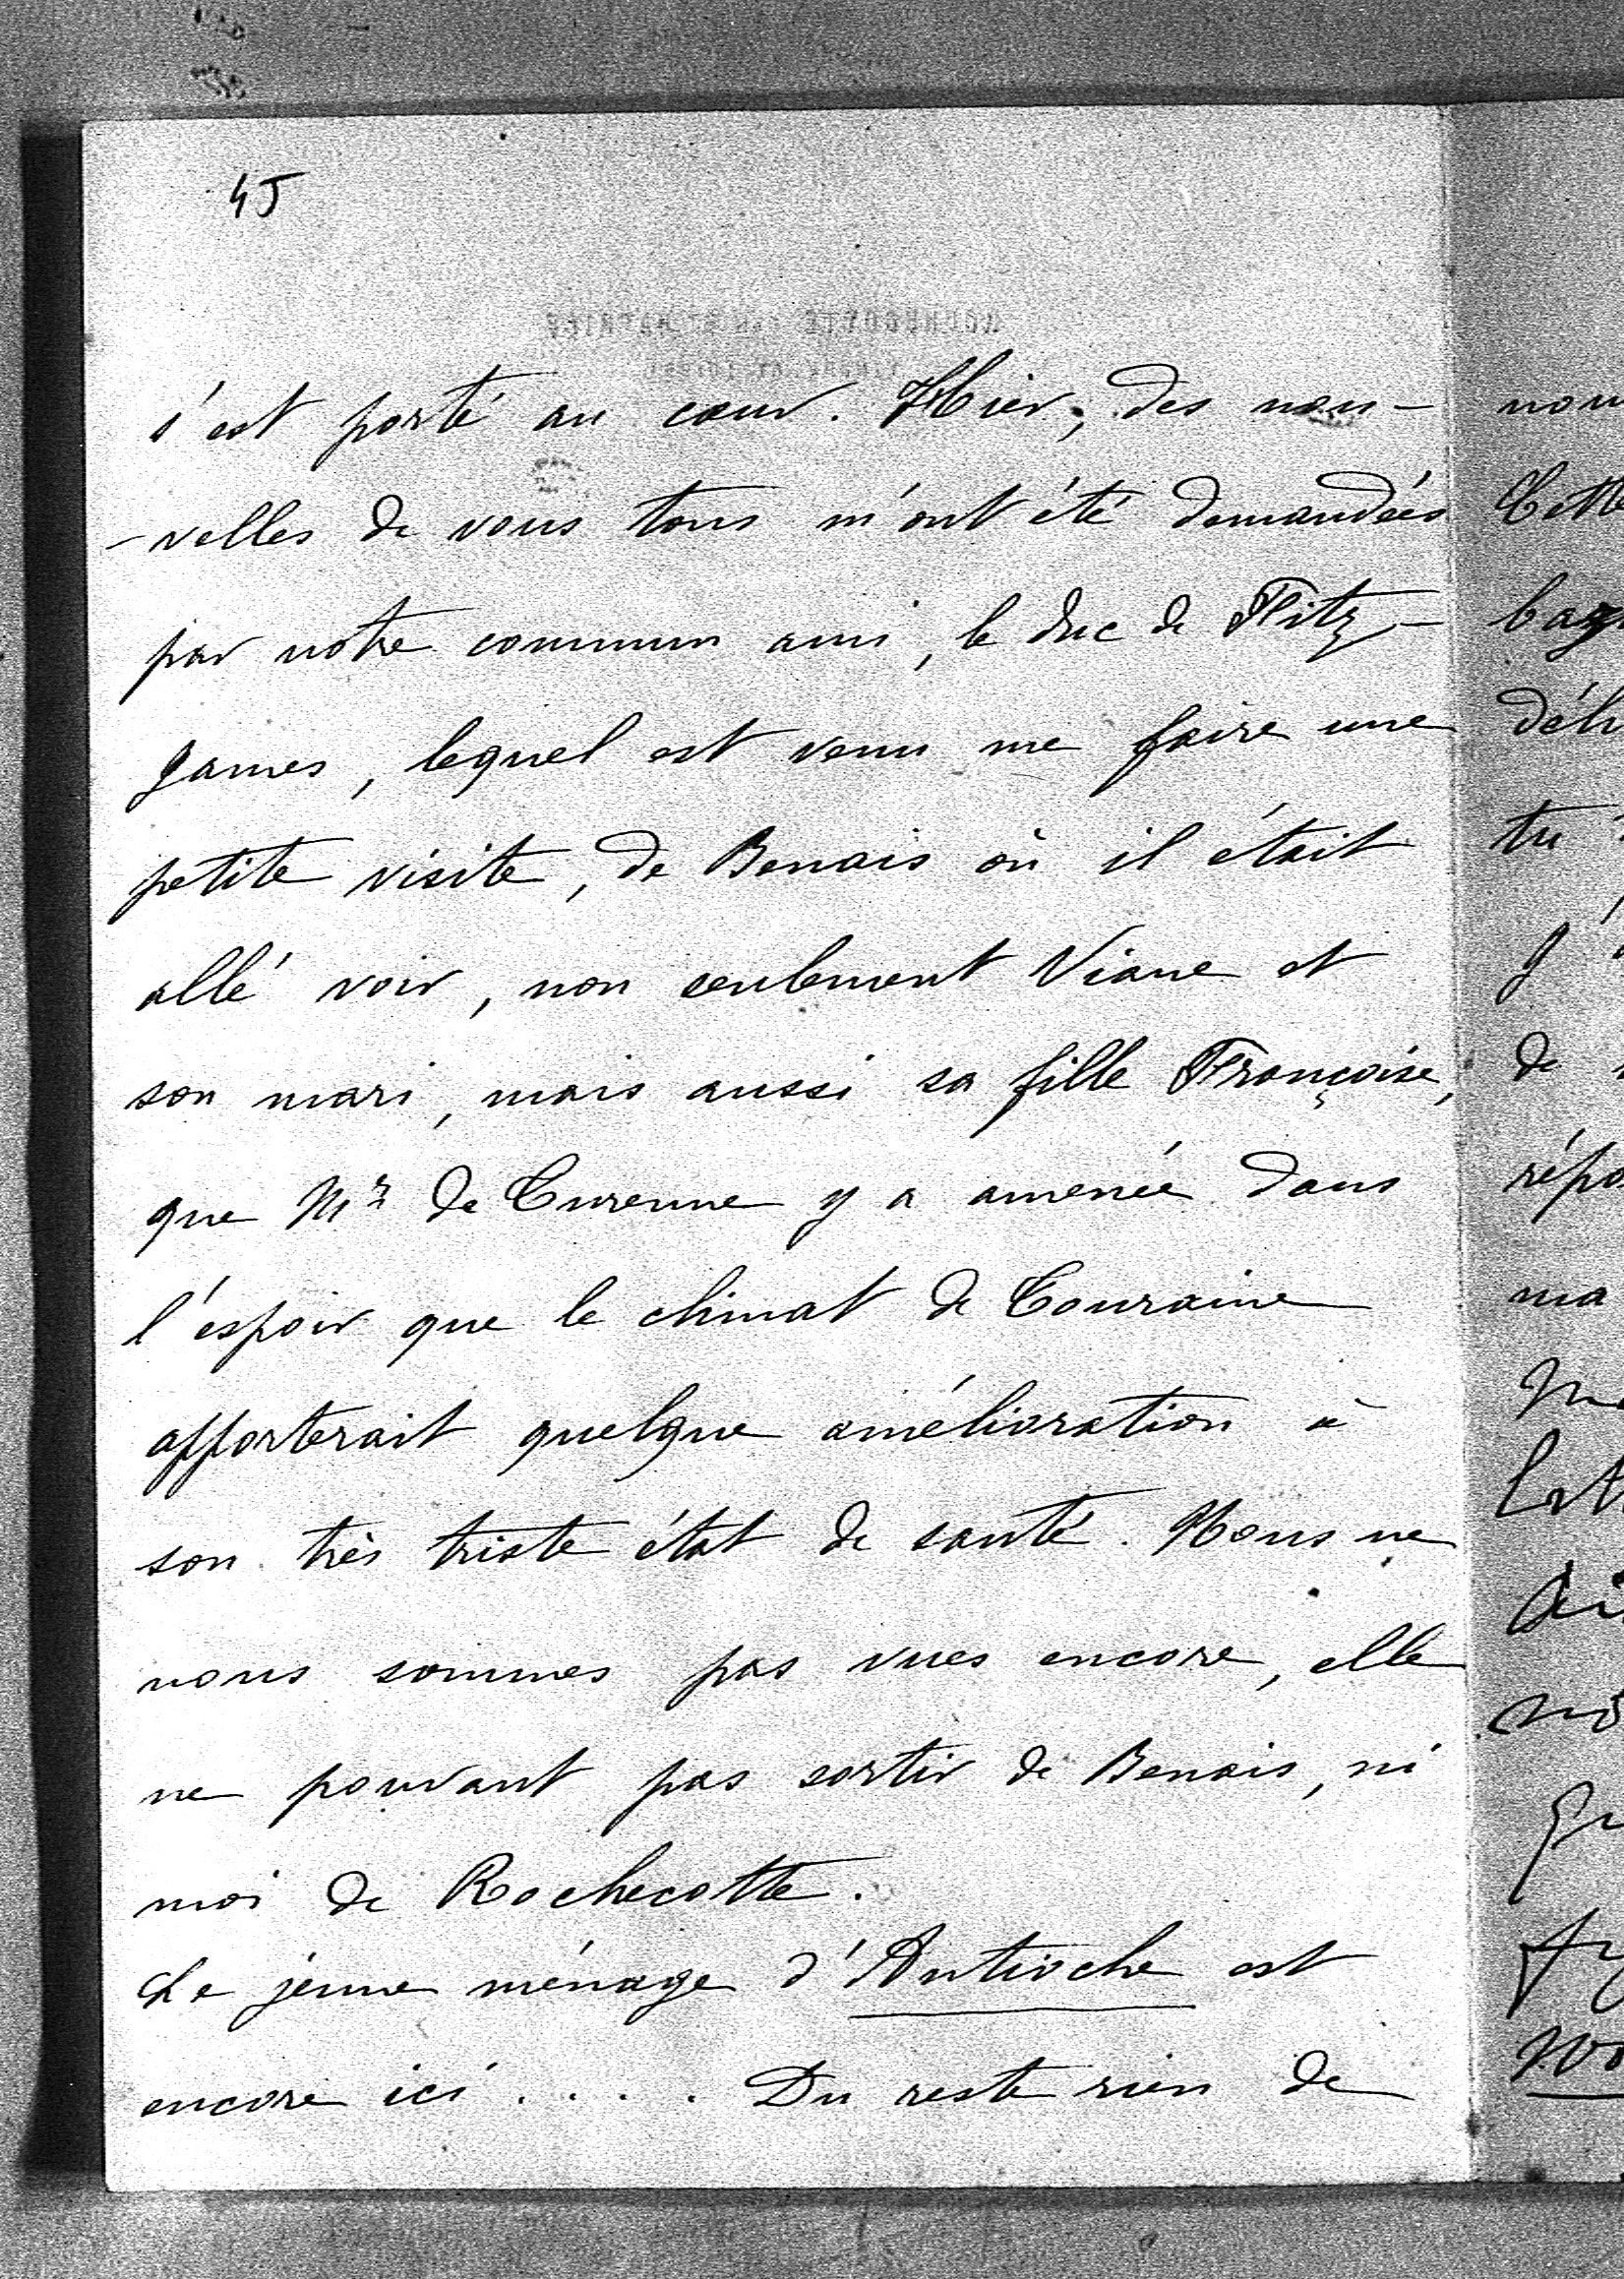 45
s'est porté au cœur. Hier, des nou-
-velles de vous tous m'ont été demandées
par notre commun ami, le duc de Fitz-
James, lequel est venu me faire une
petite visite, de Benais où il était
allé voir, non seulement Viane et
son mari, mais aussi sa fille Françoise,
que Mr de Turenne y a amenée dans
l'espoir que le climat de Touraine
apporterait quelque amélioration à
son très triste état de santé. Nous ne
nous sommes pas vues encore, elle
ne pouvant pas sortir de Benais, ni
moi de Rochecotte.
Le jeune ménage d'Antioche est
encore ici.... Du reste rien de